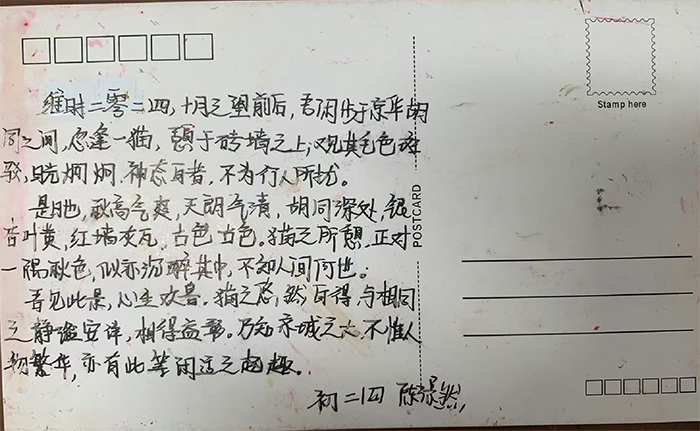 维时二零二四,十月之望前后,吾闲步于京华胡
同之间,忽逢一猫,憩于砖墙之上,观其毛色斑
驳,目光炯炯,神态自若,不为行人所扰。
是日也,秋高气爽,天朗气清,胡同深处,银
杏叶黄,红墙灰瓦,古色古色。猫之所憩,正对
一隅秋色,似亦沉醉其中,不知人间何世。
吾见此景,心生欢喜。猫之悠然自得,与胡同
之静谧安详,相得益彰。乃知京城之大,不惟人
物繁华,亦有此等闲适之趣。
初二四
Stamp here
POSTCARD